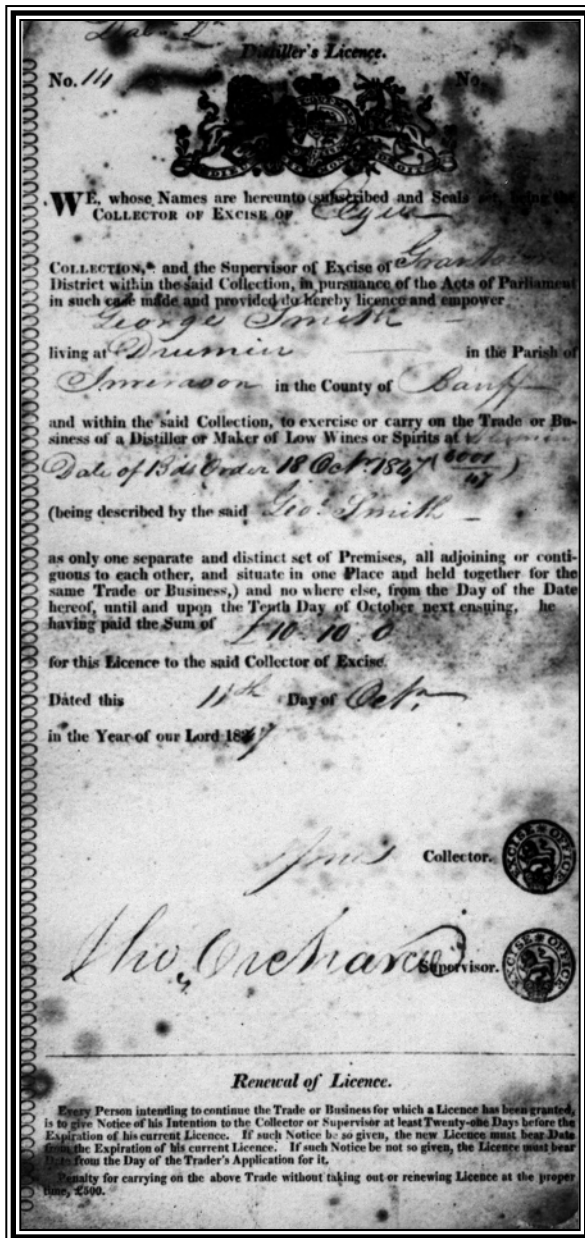 Distiller's Licence.
No. 14 No.
WE, whose Names are hereunto subscribed and Seals set, being the
COLLECTOR OF EXCISE OF Elgin
COLLECTION, and the Supervisor of Excise of Grantown
District within the said Collection, in pursuance of the Acts of Parliament
in such case made and provided do hereby licence and empower
George Smith
living at Drumin in the Parish of
Inveravon in the County of Banff
and within the said Collection, to exercise or carry on the Trade or Bu-
siness of a Distiller or Maker of Low Wines or Spirits at
Date of Bds Order 18 Octr. 1847 (6001/47)
(being described by the said Geo. Smith
as only one separate and distinct set of Premises, all adjoining or conti-
guous to each other, and situate in one Place and held together for the
same Trade or Business,) and no where else, from the Day of the Date
hereof, until and upon the Tenth Day of October next ensuing, he
having paid the Sum of £10.10.0
for this Licence to the said Collector of Excise.
Dated this 11th Day of Octr.
in the Year of our Lord 1847
Collector.
EXCISE OFFICE
Supervisor.
EXCISE OFFICE
Renewal of Licence.
Every Person intending to continue the Trade or Business for which a Licence has been granted,
is to give Notice of his Intention to the Collector or Supervisor at least Twenty-one Days before the
Expiration of his current Licence. If such Notice be so given, the new Licence must bear Date
from the Expiration of his current Licence. If such Notice be not so given, the Licence must bear
Date from the Day of the Trader's Application for it.
Penalty for carrying on the above Trade without taking out or renewing Licence at the proper
time, £500.